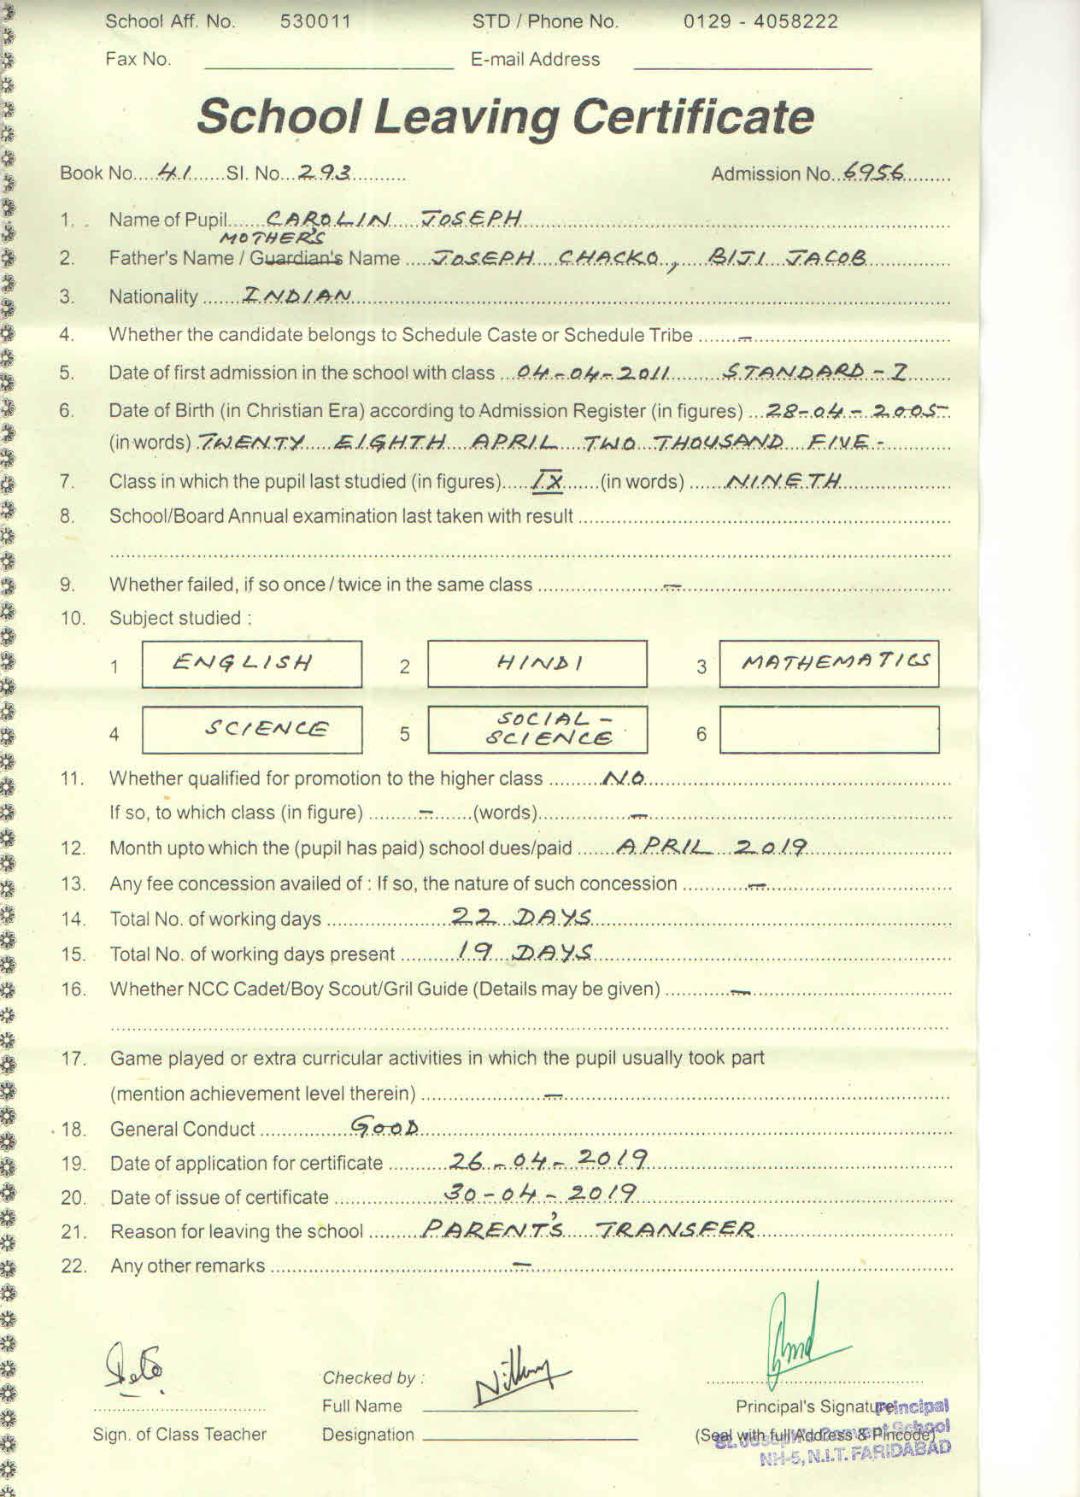 School Aff. No. 530011 STD / Phone No. 0129 - 4058222
Fax No. E-mail Address
School Leaving Certificate
Book No. 41 Sl. No. 293 Admission No. 6956
1. Name of Pupil CAROLIN JOSEPH
MOTHER'S
2. Father's Name / Guardian's Name JOSEPH CHACKO, BIJI JACOB
3. Nationality INDIAN
4. Whether the candidate belongs to Schedule Caste or Schedule Tribe –
5. Date of first admission in the school with class 04-04-2011 STANDARD - I
6. Date of Birth (in Christian Era) according to Admission Register (in figures) 28-04-2005
(in words) TWENTY EIGHTH APRIL TWO THOUSAND FIVE -
7. Class in which the pupil last studied (in figures) IX (in words) NINETH
8. School/Board Annual examination last taken with result
9. Whether failed, if so once / twice in the same class –
10. Subject studied :
1 ENGLISH 2 HINDI 3 MATHEMATICS
4 SCIENCE 5 SOCIAL - 6
SCIENCE
11. Whether qualified for promotion to the higher class NO
If so, to which class (in figure) – (words) –
12. Month upto which the (pupil has paid) school dues/paid APRIL 2019
13. Any fee concession availed of : If so, the nature of such concession –
14. Total No. of working days 22 DAYS
15. Total No. of working days present 19 DAYS
16. Whether NCC Cadet/Boy Scout/Gril Guide (Details may be given) –
17. Game played or extra curricular activities in which the pupil usually took part
(mention achievement level therein) –
18. General Conduct GOOD
19. Date of application for certificate 26-04-2019
20. Date of issue of certificate 30-04-2019
21. Reason for leaving the school PARENT'S TRANSFER
22. Any other remarks –
Checked by :
Full Name
Principal's Signature Principal
Sign. of Class Teacher Designation (Seal with full Address & Pincode)
School
NH-5, N.I.T. FARIDABAD